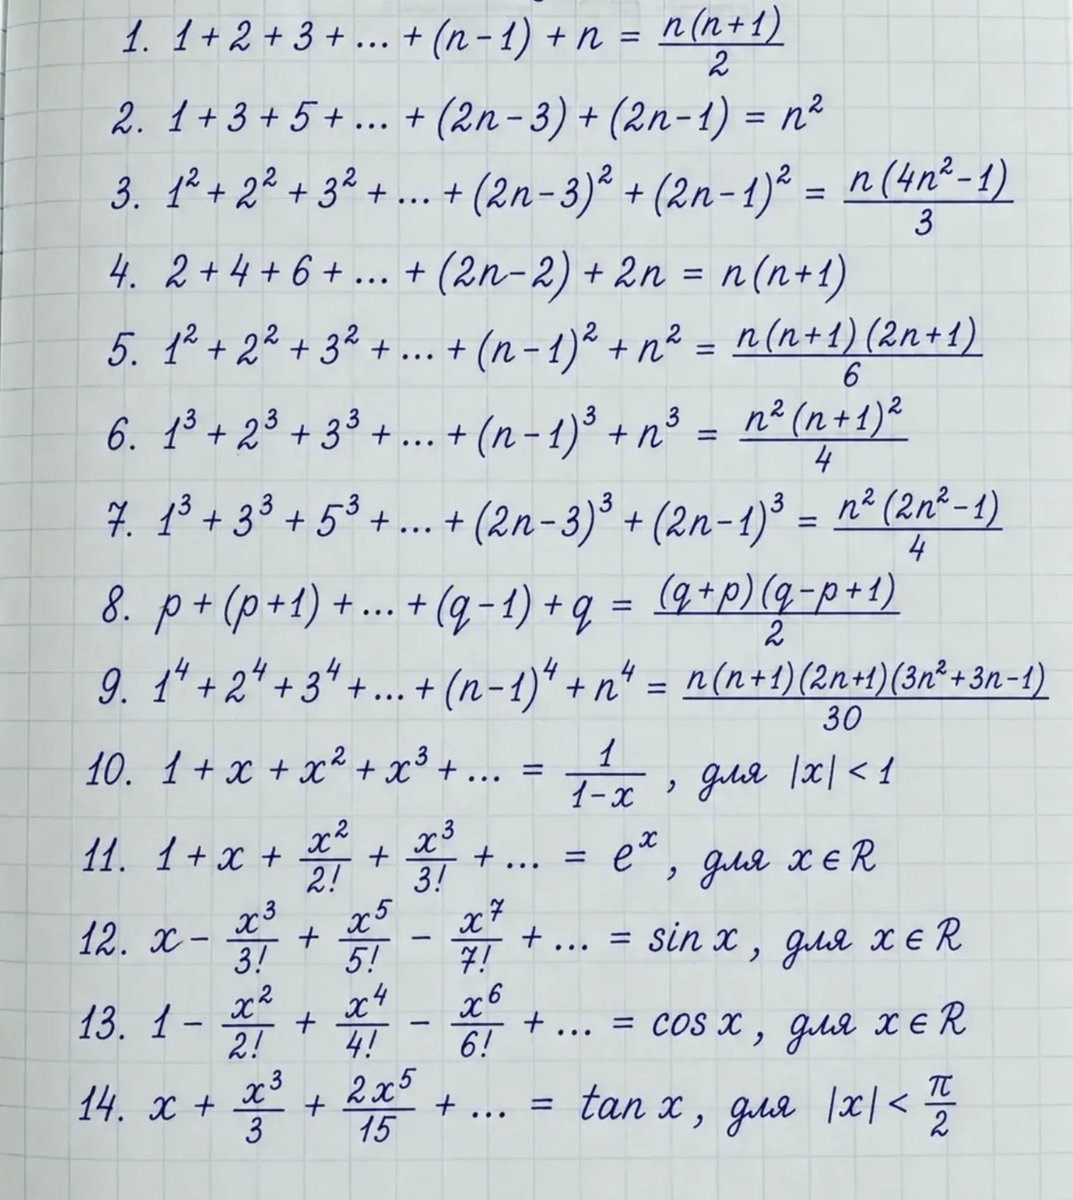 1. 1 + 2 + 3 + ... + (n-1) + n = n(n+1)/2
2. 1 + 3 + 5 + ... + (2n-3) + (2n-1) = n²
3. 1² + 2² + 3² + ... + (2n-3)² + (2n-1)² = n(4n²-1)/3
4. 2 + 4 + 6 + ... + (2n-2) + 2n = n(n+1)
5. 1² + 2² + 3² + ... + (n-1)² + n² = n(n+1)(2n+1)/6
6. 1³ + 2³ + 3³ + ... + (n-1)³ + n³ = n²(n+1)²/4
7. 1³ + 3³ + 5³ + ... + (2n-3)³ + (2n-1)³ = n²(2n²-1)/4
8. p + (p+1) + ... + (q-1) + q = (q+p)(q-p+1)/2
9. 1⁴ + 2⁴ + 3⁴ + ... + (n-1)⁴ + n⁴ = n(n+1)(2n+1)(3n²+3n-1)/30
10. 1 + x + x² + x³ + ... = 1/(1-x), для |x| < 1
11. 1 + x + x²/2! + x³/3! + ... = eˣ, для x ∈ R
12. x - x³/3! + x⁵/5! - x⁷/7! + ... = sin x, для x ∈ R
13. 1 - x²/2! + x⁴/4! - x⁶/6! + ... = cos x, для x ∈ R
14. x + x³/3 + 2x⁵/15 + ... = tan x, для |x| < π/2